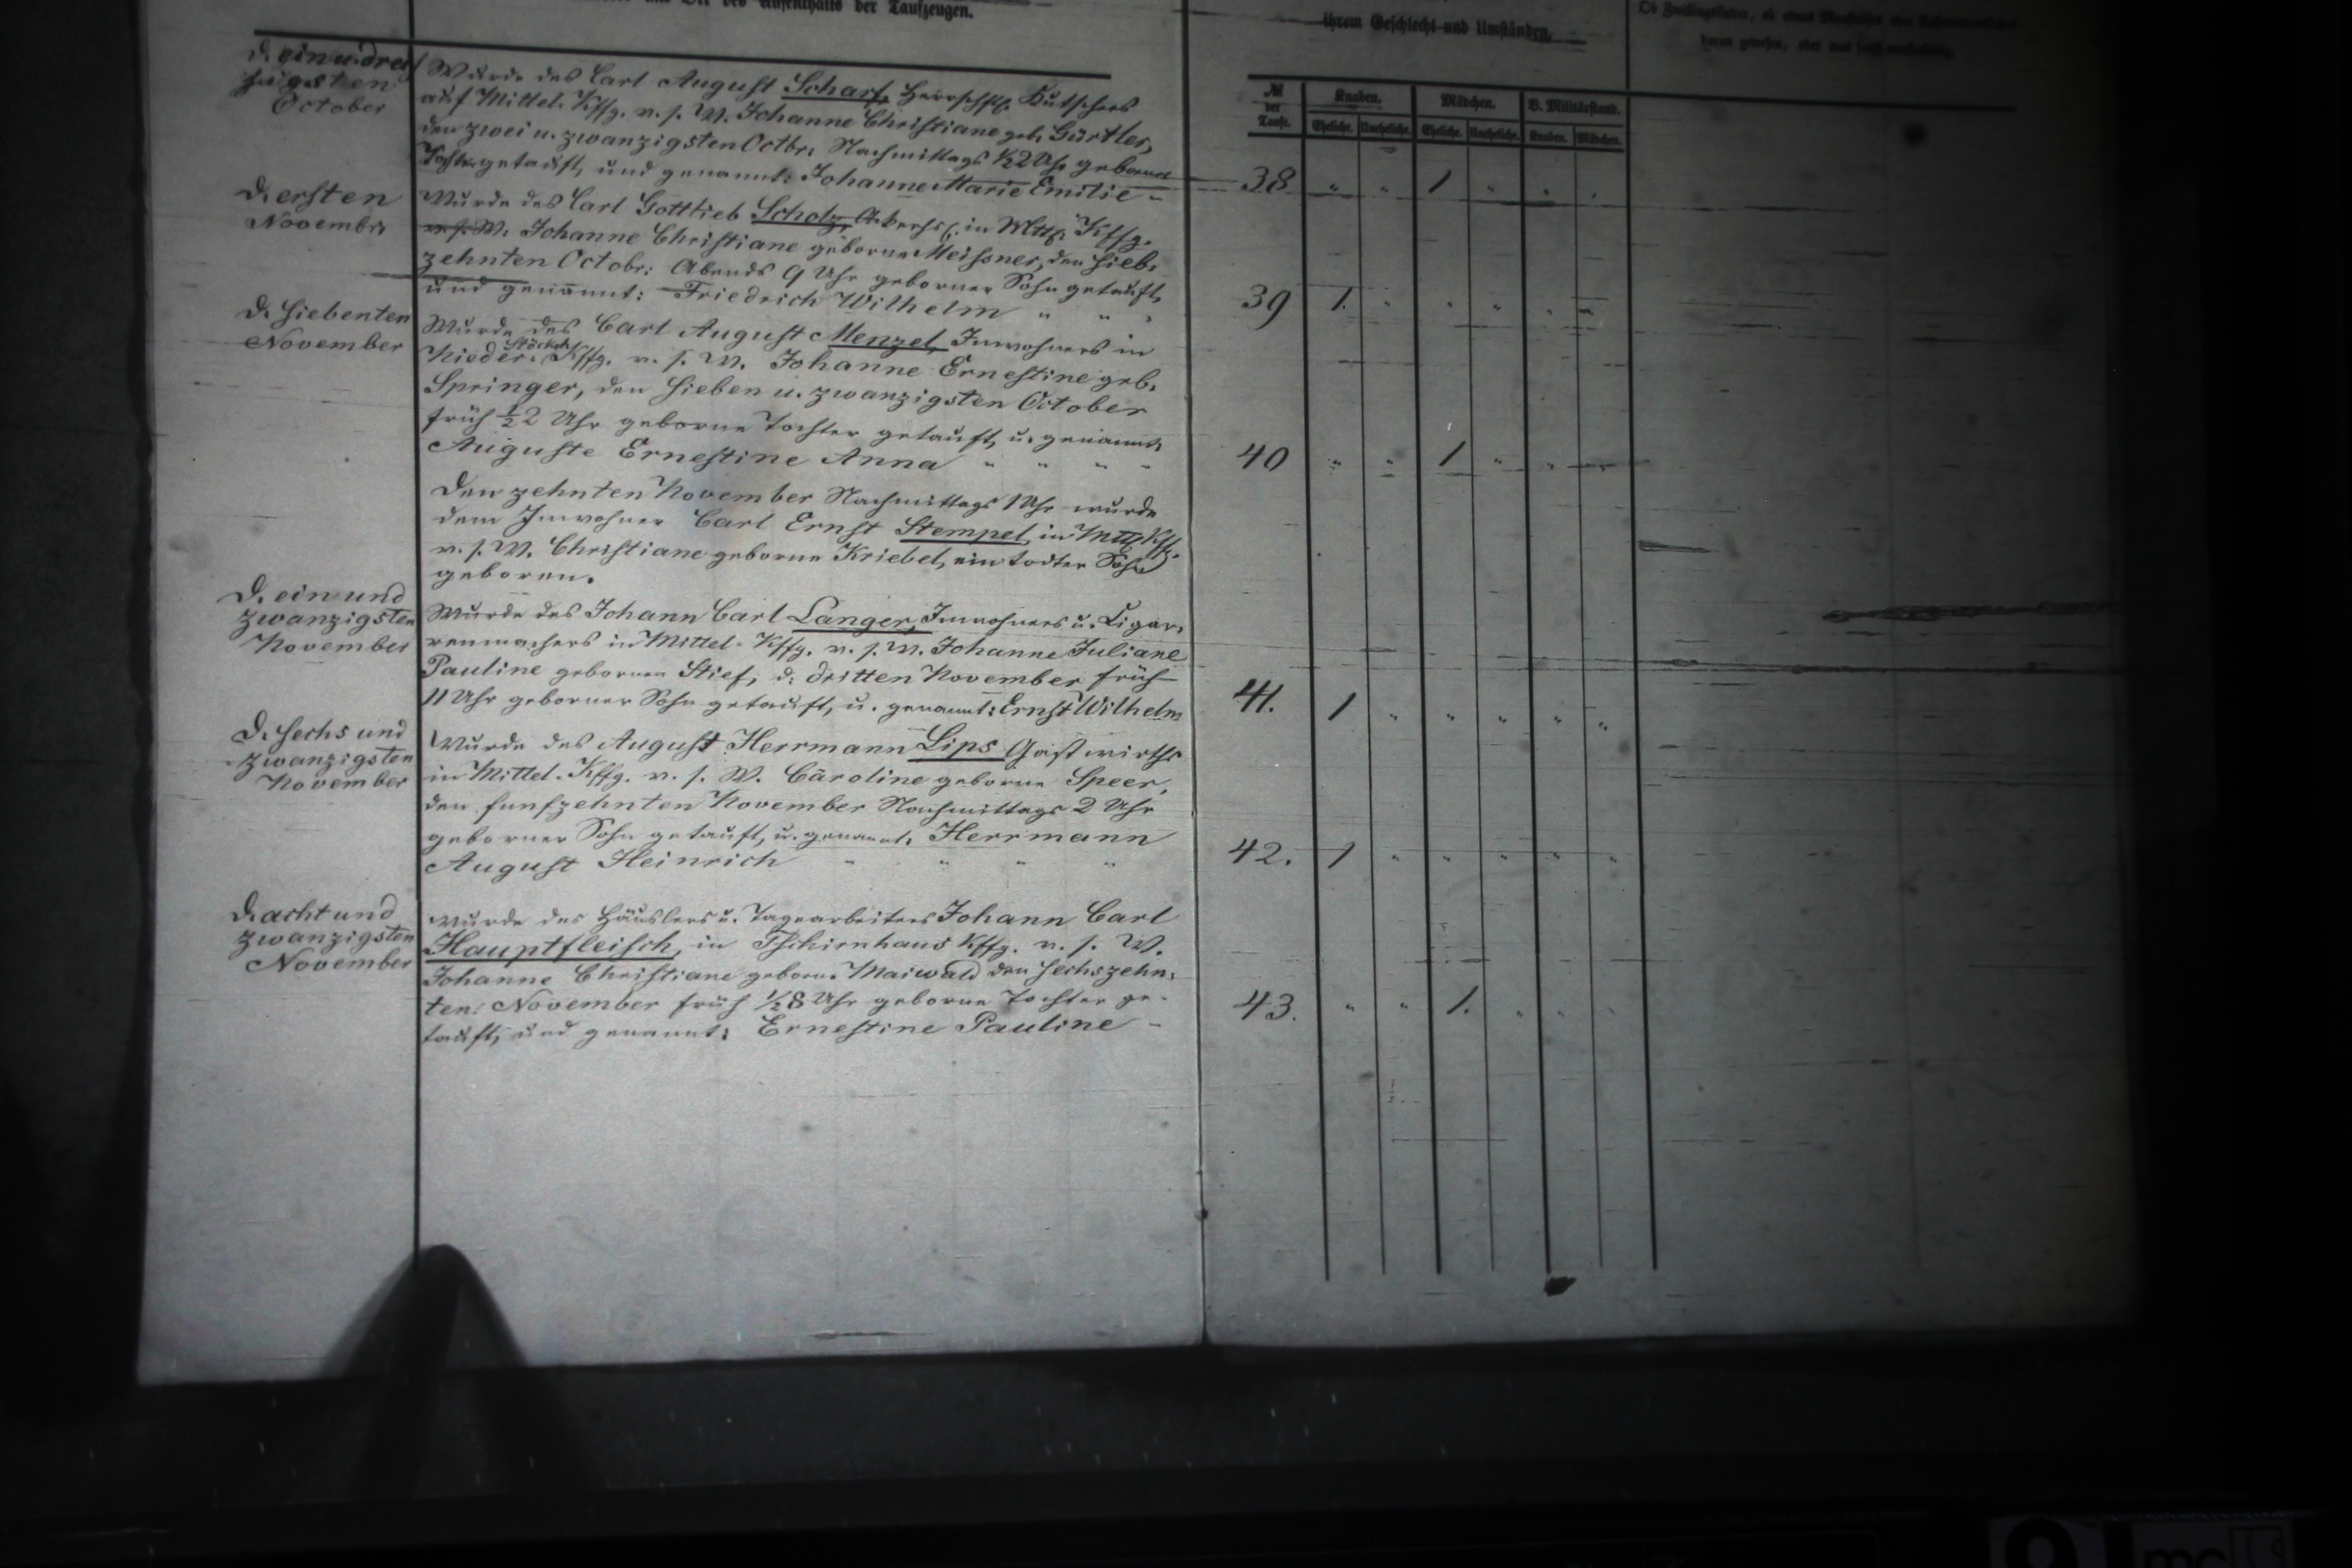 und Ort des Aufenthalts der Taufzeugen.
ihrem Geschlecht und Umständen.
№ der Taufe.
Knaben. Mädchen. B. Militärstand.
Eheliche. Uneheliche. Eheliche. Uneheliche. Knaben. Mädchen.
d. ein u. drei
ßigsten
October
Wurde des Carl August Scharf, Herrschftl. Kutschers
auf Mittel-Kffg. v. s. W. Johanne Christiane geb. Gürtler,
den zwei u. zwanzigsten Octbr: Nachmittags ½2 Uhr geborne
Tochter getauft, und genannt: Johanne Marie Emilie -
38 " " 1 " " "
d. ersten
Novembr.
Wurde des Carl Gottlieb Scholz, in Mttl: Kffg.
v. s. W. Johanne Christiane geborne Meissner, den sieb-
zehnten Octobr: Abends 9 Uhr geborner Sohn getauft,
und genannt: Friedrich Wilhelm " " "
39 1. " " " " "
d. siebenten
November
Wurde des Carl August Menzel, Inwohners in
Nieder-Stöckel Kffg. v. s. W. Johanne Ernestine geb.
Springer, den sieben u. zwanzigsten October
früh ½2 Uhr geborne Tochter getauft, u. genannt:
Auguste Ernestine Anna " " " "
40 " " 1 " " "
Den zehnten November Nachmittags 1 Uhr wurde
dem Inwohner Carl Ernst Stempel, in Mttl Kffg.
v. s. W. Christiane geborne Kriebel, ein todter Sohn
geboren.
d. ein und
zwanzigsten
November
Wurde des Johann Carl Langer, Inwohners u. Cigar-
renmachers in Mittel-Kffg. v. s. W. Johanne Juliane
Pauline gebornen Stief, d. dritten November früh
11 Uhr geborner Sohn getauft, u. genannt: Ernst Wilhelm
41. 1 " " " " "
d. sechs und
zwanzigsten
November
Wurde des August Herrmann Lips Gastwirths
in Mittel-Kffg. v. s. W. Caroline geborne Speer,
den funfzehnten November Nachmittags 2 Uhr
geborner Sohn getauft, u. genannt: Herrmann
August Heinrich " " " "
42. 1 " " " " "
d. acht und
zwanzigsten
November
Wurde des Häuslers u. Tagearbeiters Johann Carl
Hauptfleisch, in Tschirnhaus Kffg. v. s. W.
Johanne Christiane geborn. Maiwald den sechszehn-
ten November früh ½8 Uhr geborne Tochter ge-
tauft, und genannt: Ernestine Pauline -
43. " " 1. " " "